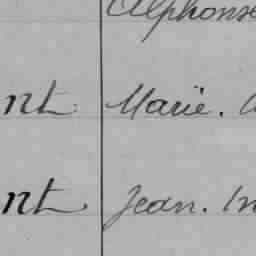 Alphonse
nt. Marie.
nt. Jean. In